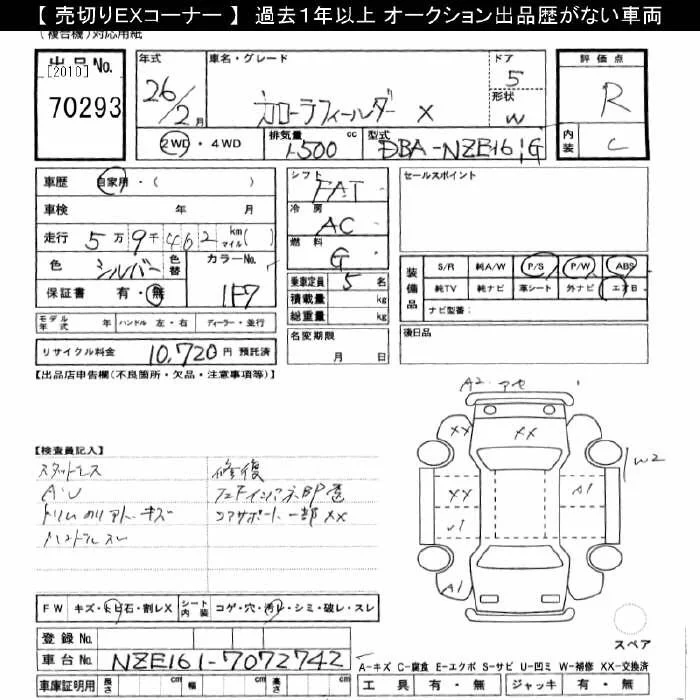 【 売切りEXコーナー 】 過去1年以上 オークション出品歴がない車両
(複合機)対応用紙
出品No.
[2010]
70293
年式
26/2月
車名・グレード
カローラフィールダー X
ドア
5
形状
W
評価点
R
内装
C
2WD・4WD
排気量
1500cc
型式
DBA-NZE161G
車歴 自家用・( )
車検 年 月
走行 5万9千462 km マイル( )
色 シルバー 色替
カラーNo.
1F7
保証書 有・無
シフト
FAT
冷房
AC
燃料
G
乗車定員 5名
積載量 kg
総重量 kg
セールスポイント
装備品
S/R 純A/W P/S P/W ABS
純TV 純ナビ 革シート 外ナビ エアB
ナビ型番:
モデル年式 年 ハンドル 左・右 ディーラー・並行
リサイクル料金 10,720円 預託済
名変期限
月 日
後日品
【出品店申告欄(不良箇所・欠品・注意事項等)】
【検査員記入】
スタットレス
A/U
トリム のり アト・キズ
ハンドルスレ
修復
コアサポート 一部 XX
A2 アセ
XX XX
W2
XX A1
U1
A1
FW キズ・トビ石・割レX シート内装 コゲ・穴・汚レ・シミ・破レ・スレ
登録No.
車台No. NZE161-7072742
車庫証明用 長さ cm 幅 cm 高さ cm
スペア
A-キズ C-腐食 E-エクボ S-サビ U-凹ミ W-補修 XX-交換済
工具 有・無 ジャッキ 有・無